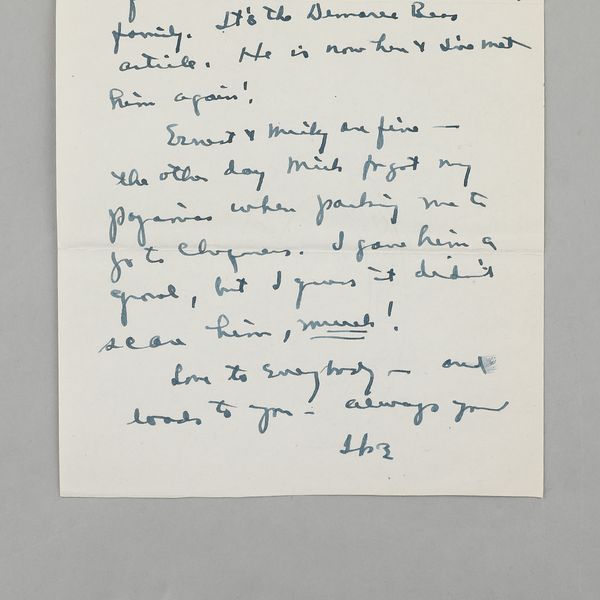 family. It's the Demaree Bess
article. He is now here & I've met
him again!
Ernest & Mickey are fine —
the other day Mick forgot my
pajamas when packing me to
go to Chequers. I gave him a
growl, but I guess it didn't
scare him, much!
Love to Everybody — and
loads to you — always your
Ike